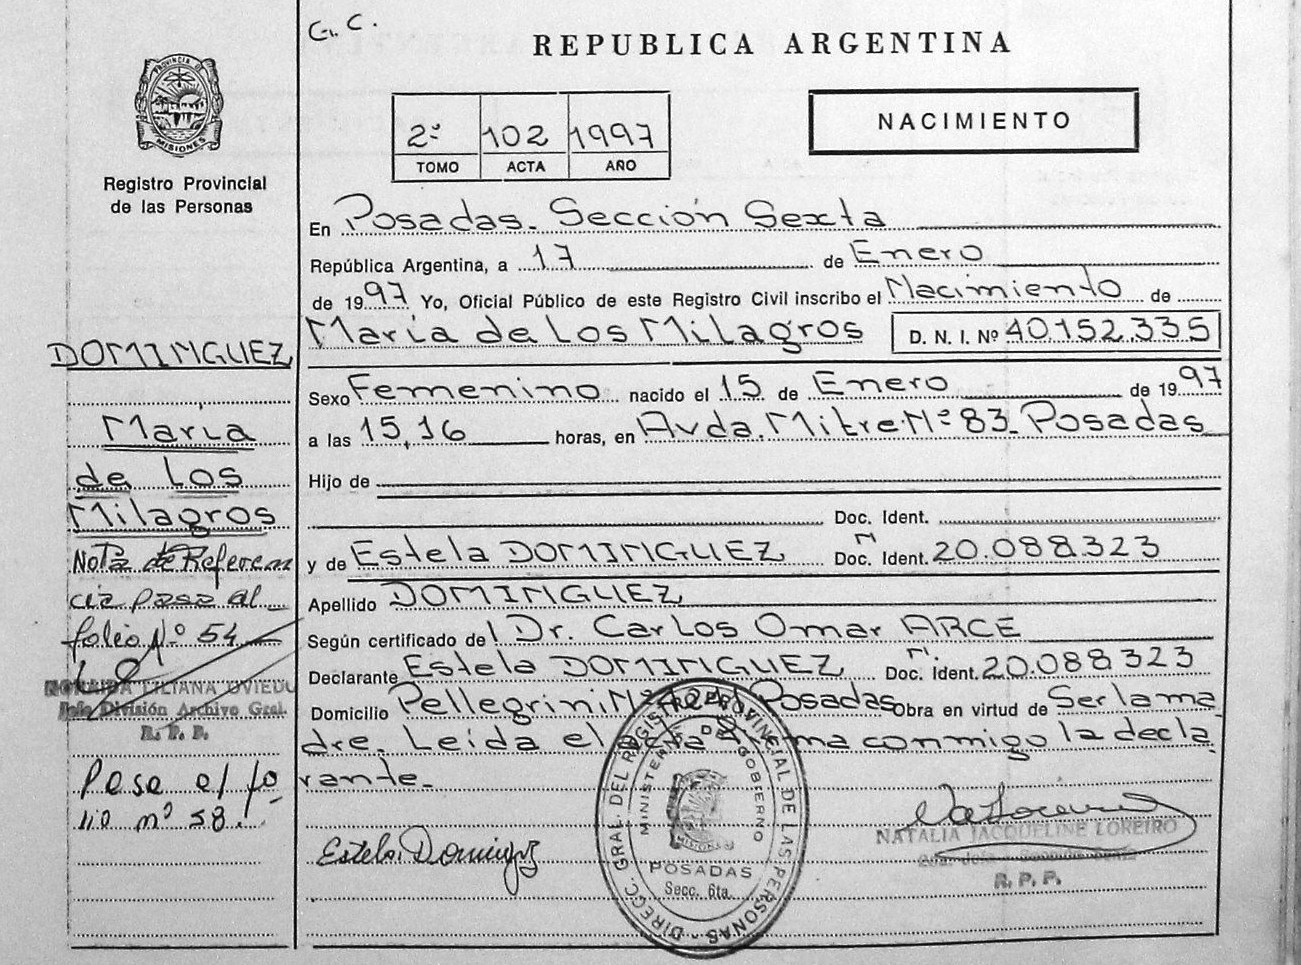 G. C.
REPUBLICA ARGENTINA
PROVINCIA DE
MISIONES
Registro Provincial
de las Personas
2º 102 1997
TOMO ACTA AÑO
NACIMIENTO
En Posadas. Sección Sexta
República Argentina, a 17 de Enero
de 1997 Yo, Oficial Público de este Registro Civil inscribo el Nacimiento de
María de Los Milagros D. N. I. Nº 40.152.335
Sexo Femenino nacido el 15 de Enero de 1997
a las 15,16 horas, en Avda. Mitre Nº 83. Posadas
Hijo de
Doc. Ident.
y de Estela DOMINGUEZ Doc. Ident. 20.088.323
Apellido DOMINGUEZ
Según certificado del Dr. Carlos Omar ARCE
Declarante Estela DOMINGUEZ Doc. Ident. 20.088.323
Domicilio Pellegrini Nº Posadas Obra en virtud de Ser la ma
dre. Leída el acta firma conmigo la decla
rante.
DOMINGUEZ
María
de Los
Milagros
Nota de Referen
cia pasa al
folio Nº 54
LILIANA OVIEDO
Jefe División Archivo Gral.
R. P. P.
Pasa al fo
lio nº 58.
Estela Dominguez
DIRECC. GRAL. DEL REGISTRO PROVINCIAL DE LAS PERSONAS
MINISTERIO DE GOBIERNO
MISIONES
POSADAS
Secc. 6ta.
NATALIA JACQUELINE LOREIRO
2da. Jefe - Sección Sexta
R. P. P.